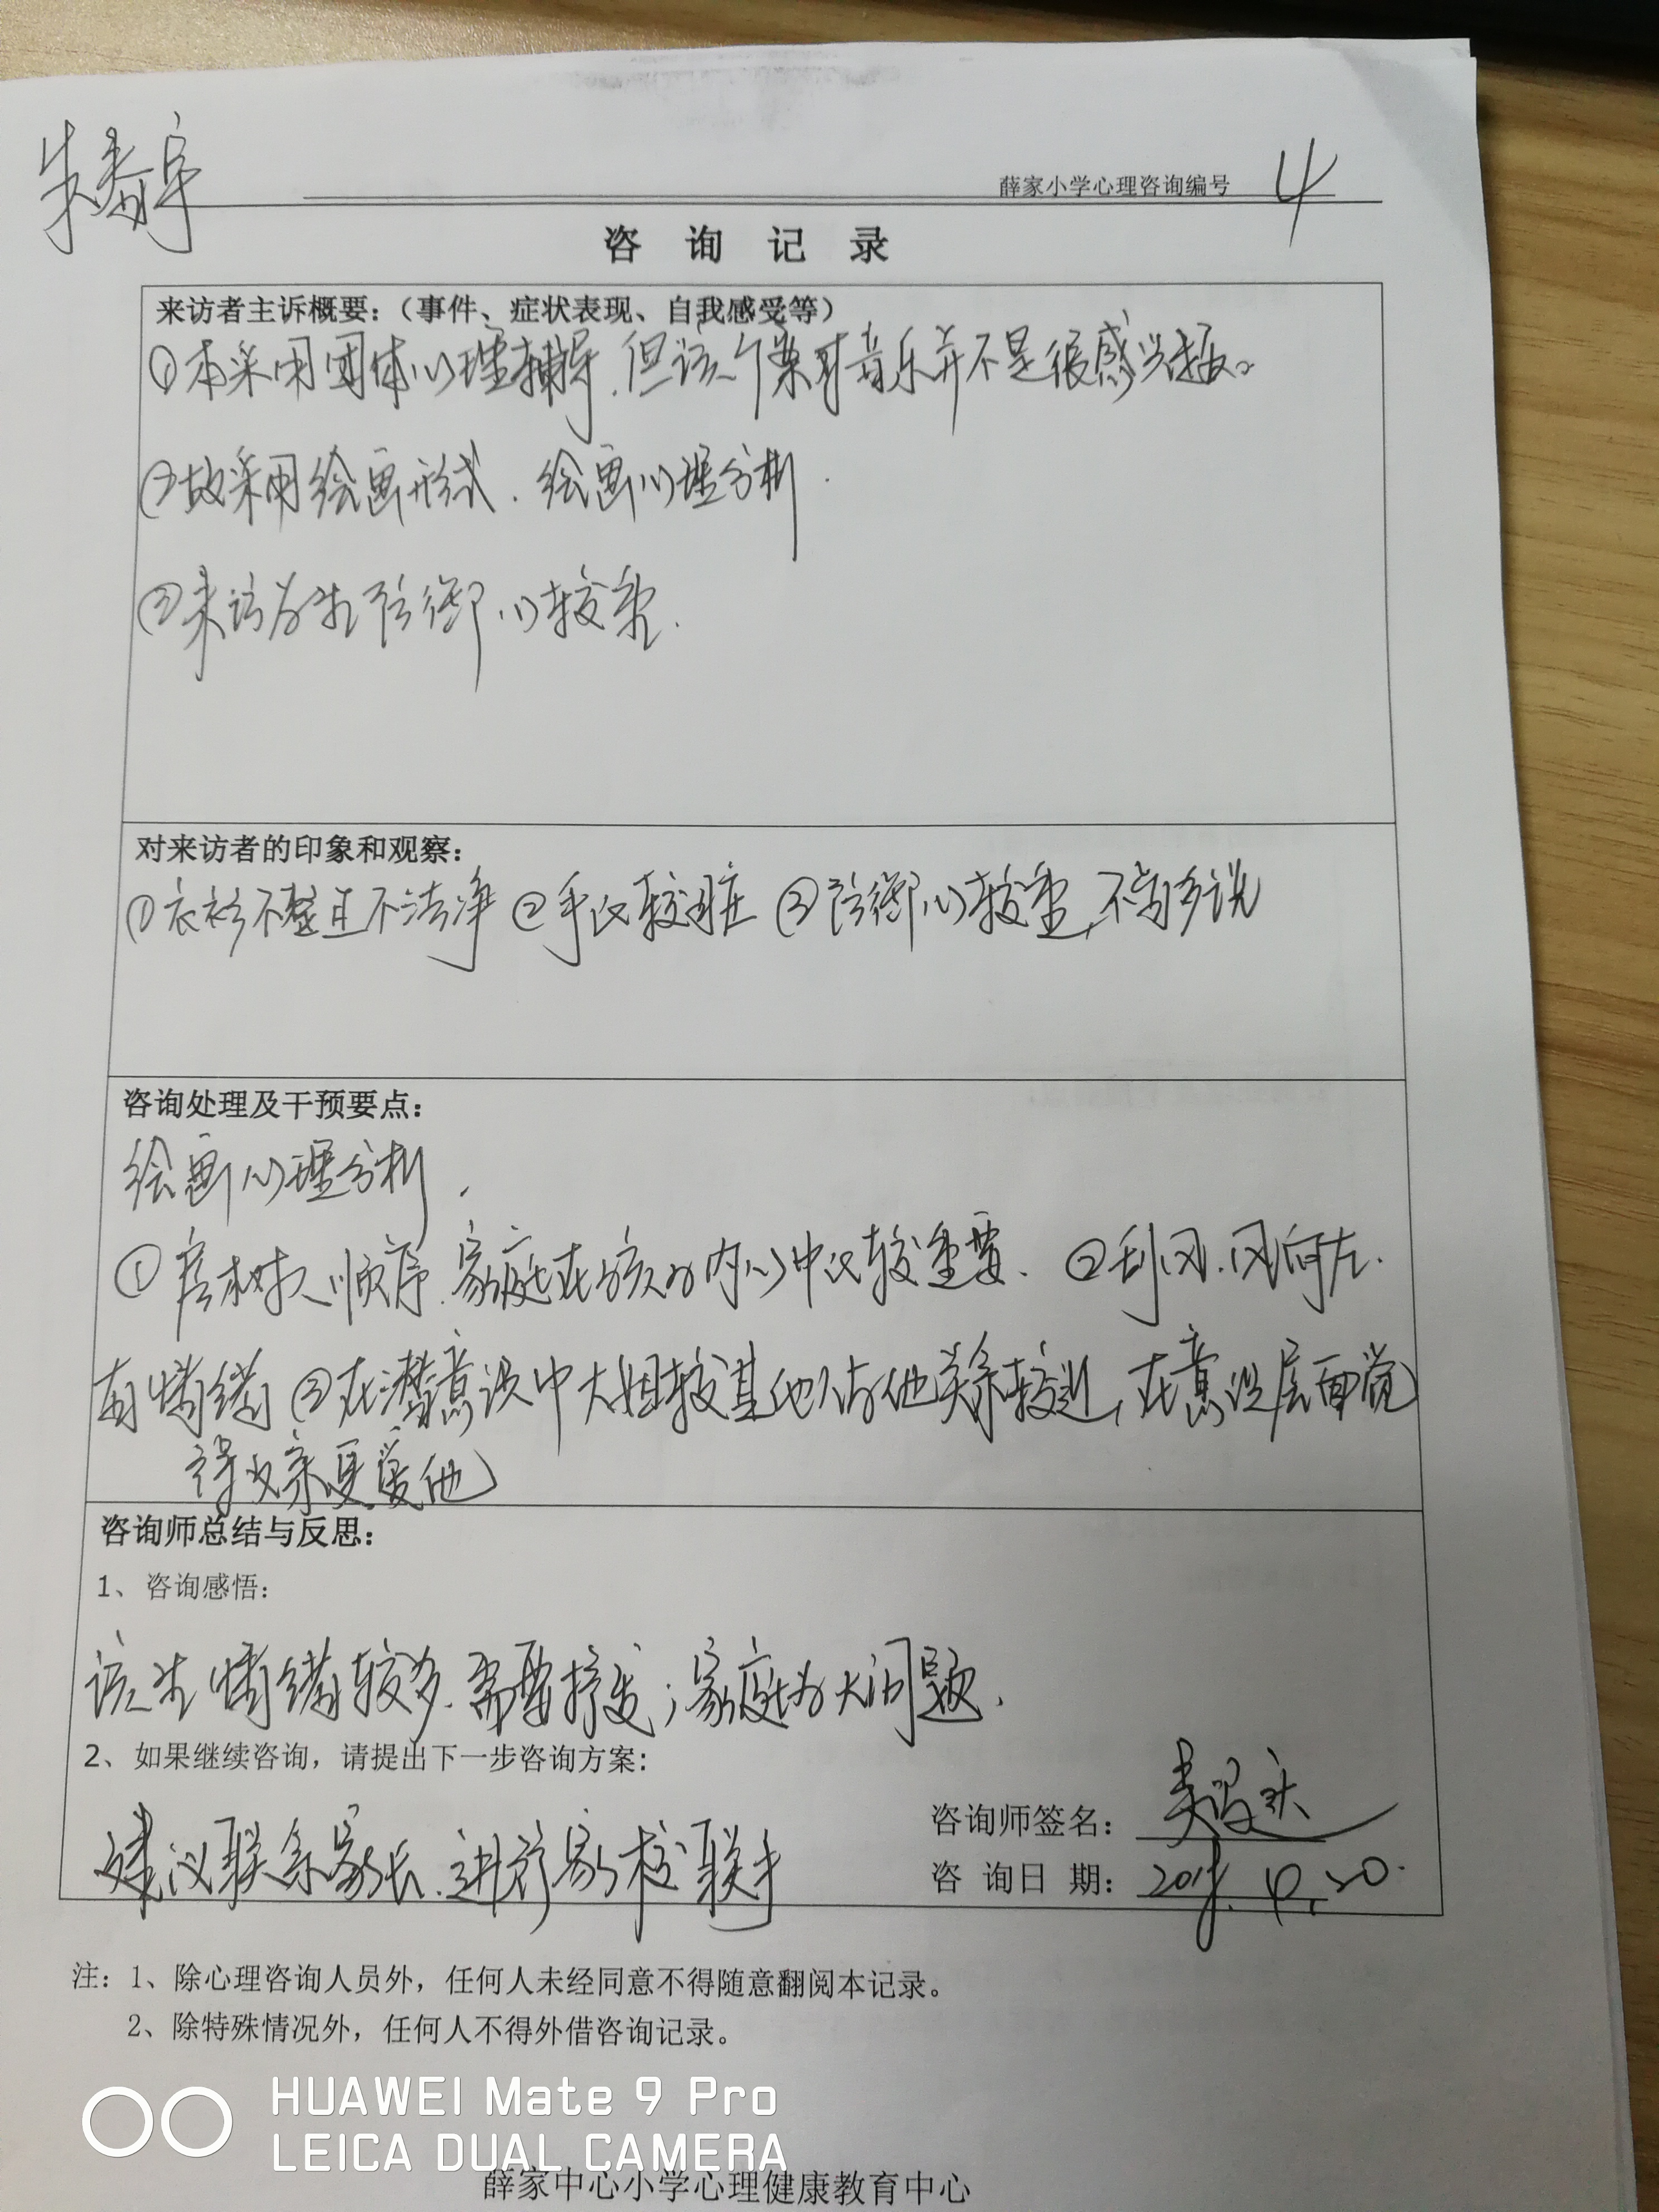 薛家小学心理咨询编号 4
咨 询 记 录
来访者主诉概要：（事件、症状表现、自我感受等）
①本采用团体心理辅导，但该个案对音乐并不是很感兴趣。
②故采用绘画形式，绘画心理分析．
③来访者生防御心较重．
对来访者的印象和观察：
①衣衫不整且不洁净 ②手比较脏 ③防御心较重，不肯多说
咨询处理及干预要点：
绘画心理分析．
①房树人顺序，家庭在孩子内心中比较重要． ②刮风，风向左．
有情绪 ③在潜意识中大姐较其他人与他关系较近，在意识层面觉
得父亲更爱他
咨询师总结与反思：
1、咨询感悟：
该生情绪较多，需要抒发；家庭为大问题．
2、如果继续咨询，请提出下一步咨询方案：
建议联系家长，进行家校联手
咨询师签名：
咨 询 日 期：
注：1、除心理咨询人员外，任何人未经同意不得随意翻阅本记录。
2、除特殊情况外，任何人不得外借咨询记录。
HUAWEI Mate 9 Pro
LEICA DUAL CAMERA
薛家中心小学心理健康教育中心